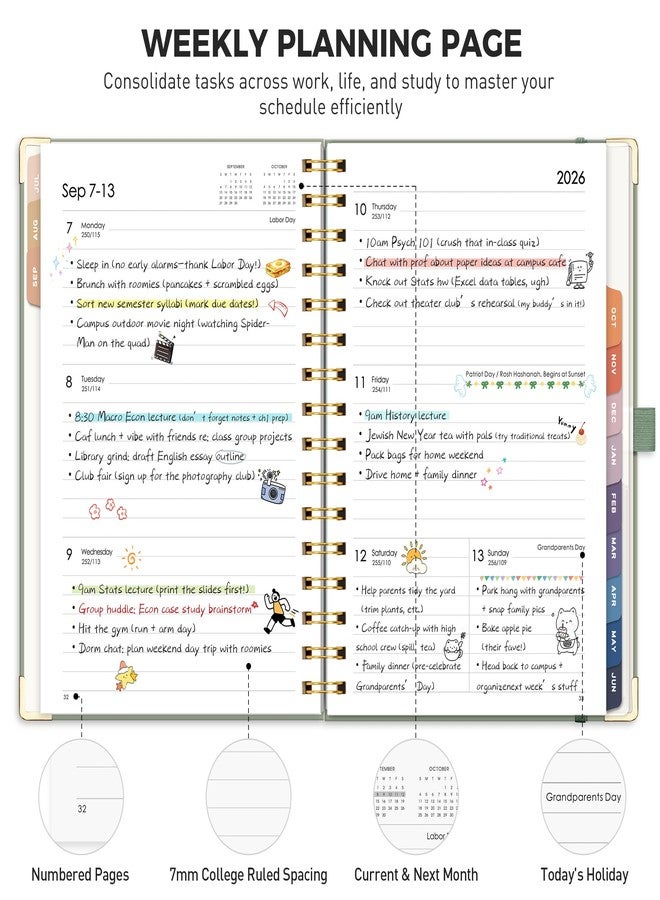 WEEKLY PLANNING PAGE
Consolidate tasks across work, life, and study to master your
schedule efficiently
JUL
AUG
SEP
Sep 7-13
SEPTEMBER
OCTOBER
7 Monday
250/115
Labor Day
• Sleep in (no early alarms—thank Labor Day!)
• Brunch with roomies (pancakes + scrambled eggs)
• Sort new semester syllabi (mark due dates!)
• Campus outdoor movie night (watching Spider-
Man on the quad)
8 Tuesday
251/114
• 8:30 Macro Econ lecture (don't forget notes + ch1 prep)
• Caf lunch + vibe with friends re: class group projects
• Library grind: draft English essay outline
• Club fair (sign up for the photography club)
9 Wednesday
252/113
• 9am Stats lecture (print the slides first!)
• Group huddle: Econ case study brainstorm
• Hit the gym (run + arm day)
• Dorm chat: plan weekend day trip with roomies
32
2026
10 Thursday
253/112
• 10am Psych 101 (crush that in-class quiz)
• Chat with prof about paper ideas at campus cafe
• Knock out Stats hw (Excel data tables, ugh)
• Check out theater club's rehearsal (my buddy's in it!)
11 Friday
254/111
Patriot Day / Rosh Hashanah, Begins at Sunset
• 9am History lecture
• Jewish New Year tea with pals (try traditional treats)
Yummy
• Pack bags for home weekend
• Drive home + family dinner
12 Saturday
255/110
• Help parents tidy the yard
(trim plants, etc.)
• Coffee catch-up with high
school crew (spill tea)
• Family dinner (pre-celebrate
Grandparents' Day)
13 Sunday
256/109
Grandparents Day
• Park hang with grandparents
+ snap family pics
• Bake apple pie
(their fave!)
• Head back to campus +
organizenext week's stuff
OCT
NOV
DEC
JAN
FEB
MAR
APR
MAY
JUN
32
TEMBER
OCTOBER
Labor
Grandparents Day
Numbered Pages
7mm College Ruled Spacing
Current & Next Month
Today's Holiday